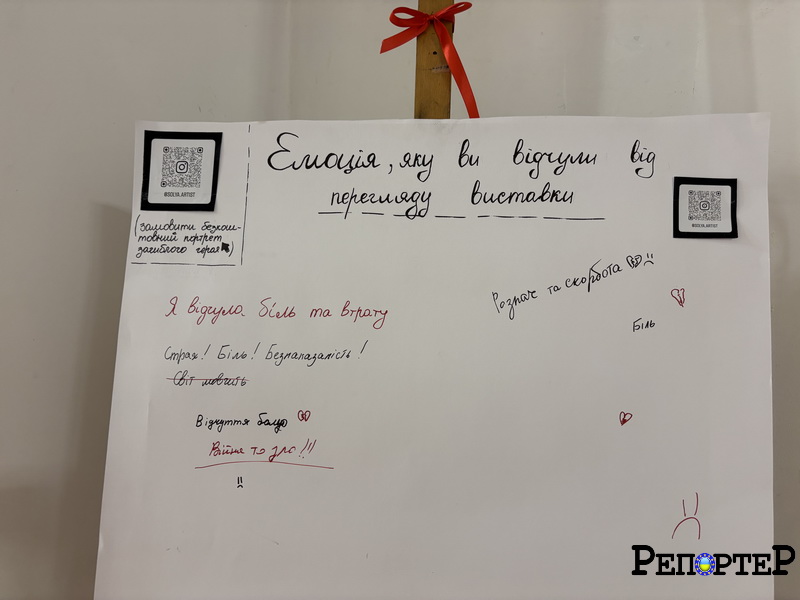 Емоція, яку ви відчули від
перегляду виставки
@SOLYA.ARTIST
(замовити безкош-
товний портрет
загиблого героя)
@SOLYA.ARTIST
Розпач та скорбота
Біль
Я відчула біль та втрату
Страх! Біль! Безпапазалість!
Світ мовчить
Відчуття болю
Війна то зло!!!
РЕПОРТЕР